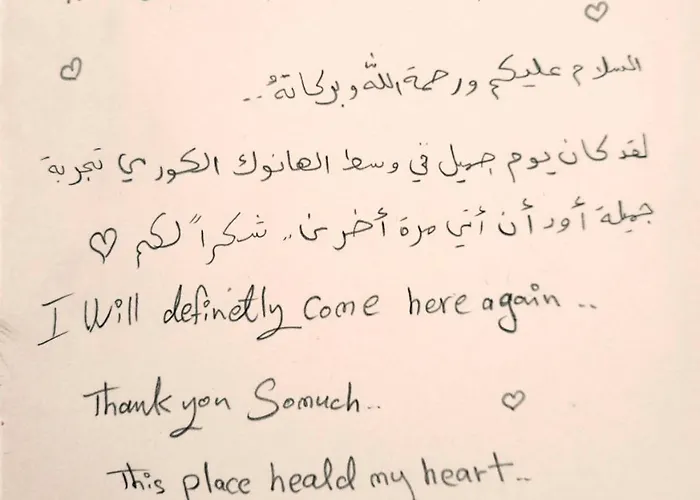 السلام عليكم ورحمة الله وبركاتةُ..
لقد كان يوم جميل في وسط الهانوك الكوري تجربة
جميلة أود أن أتي مرة أخرى.. شكراً لكم ♡
I Will definetly come here again ..
Thank you Somuch..
This place heald my heart..